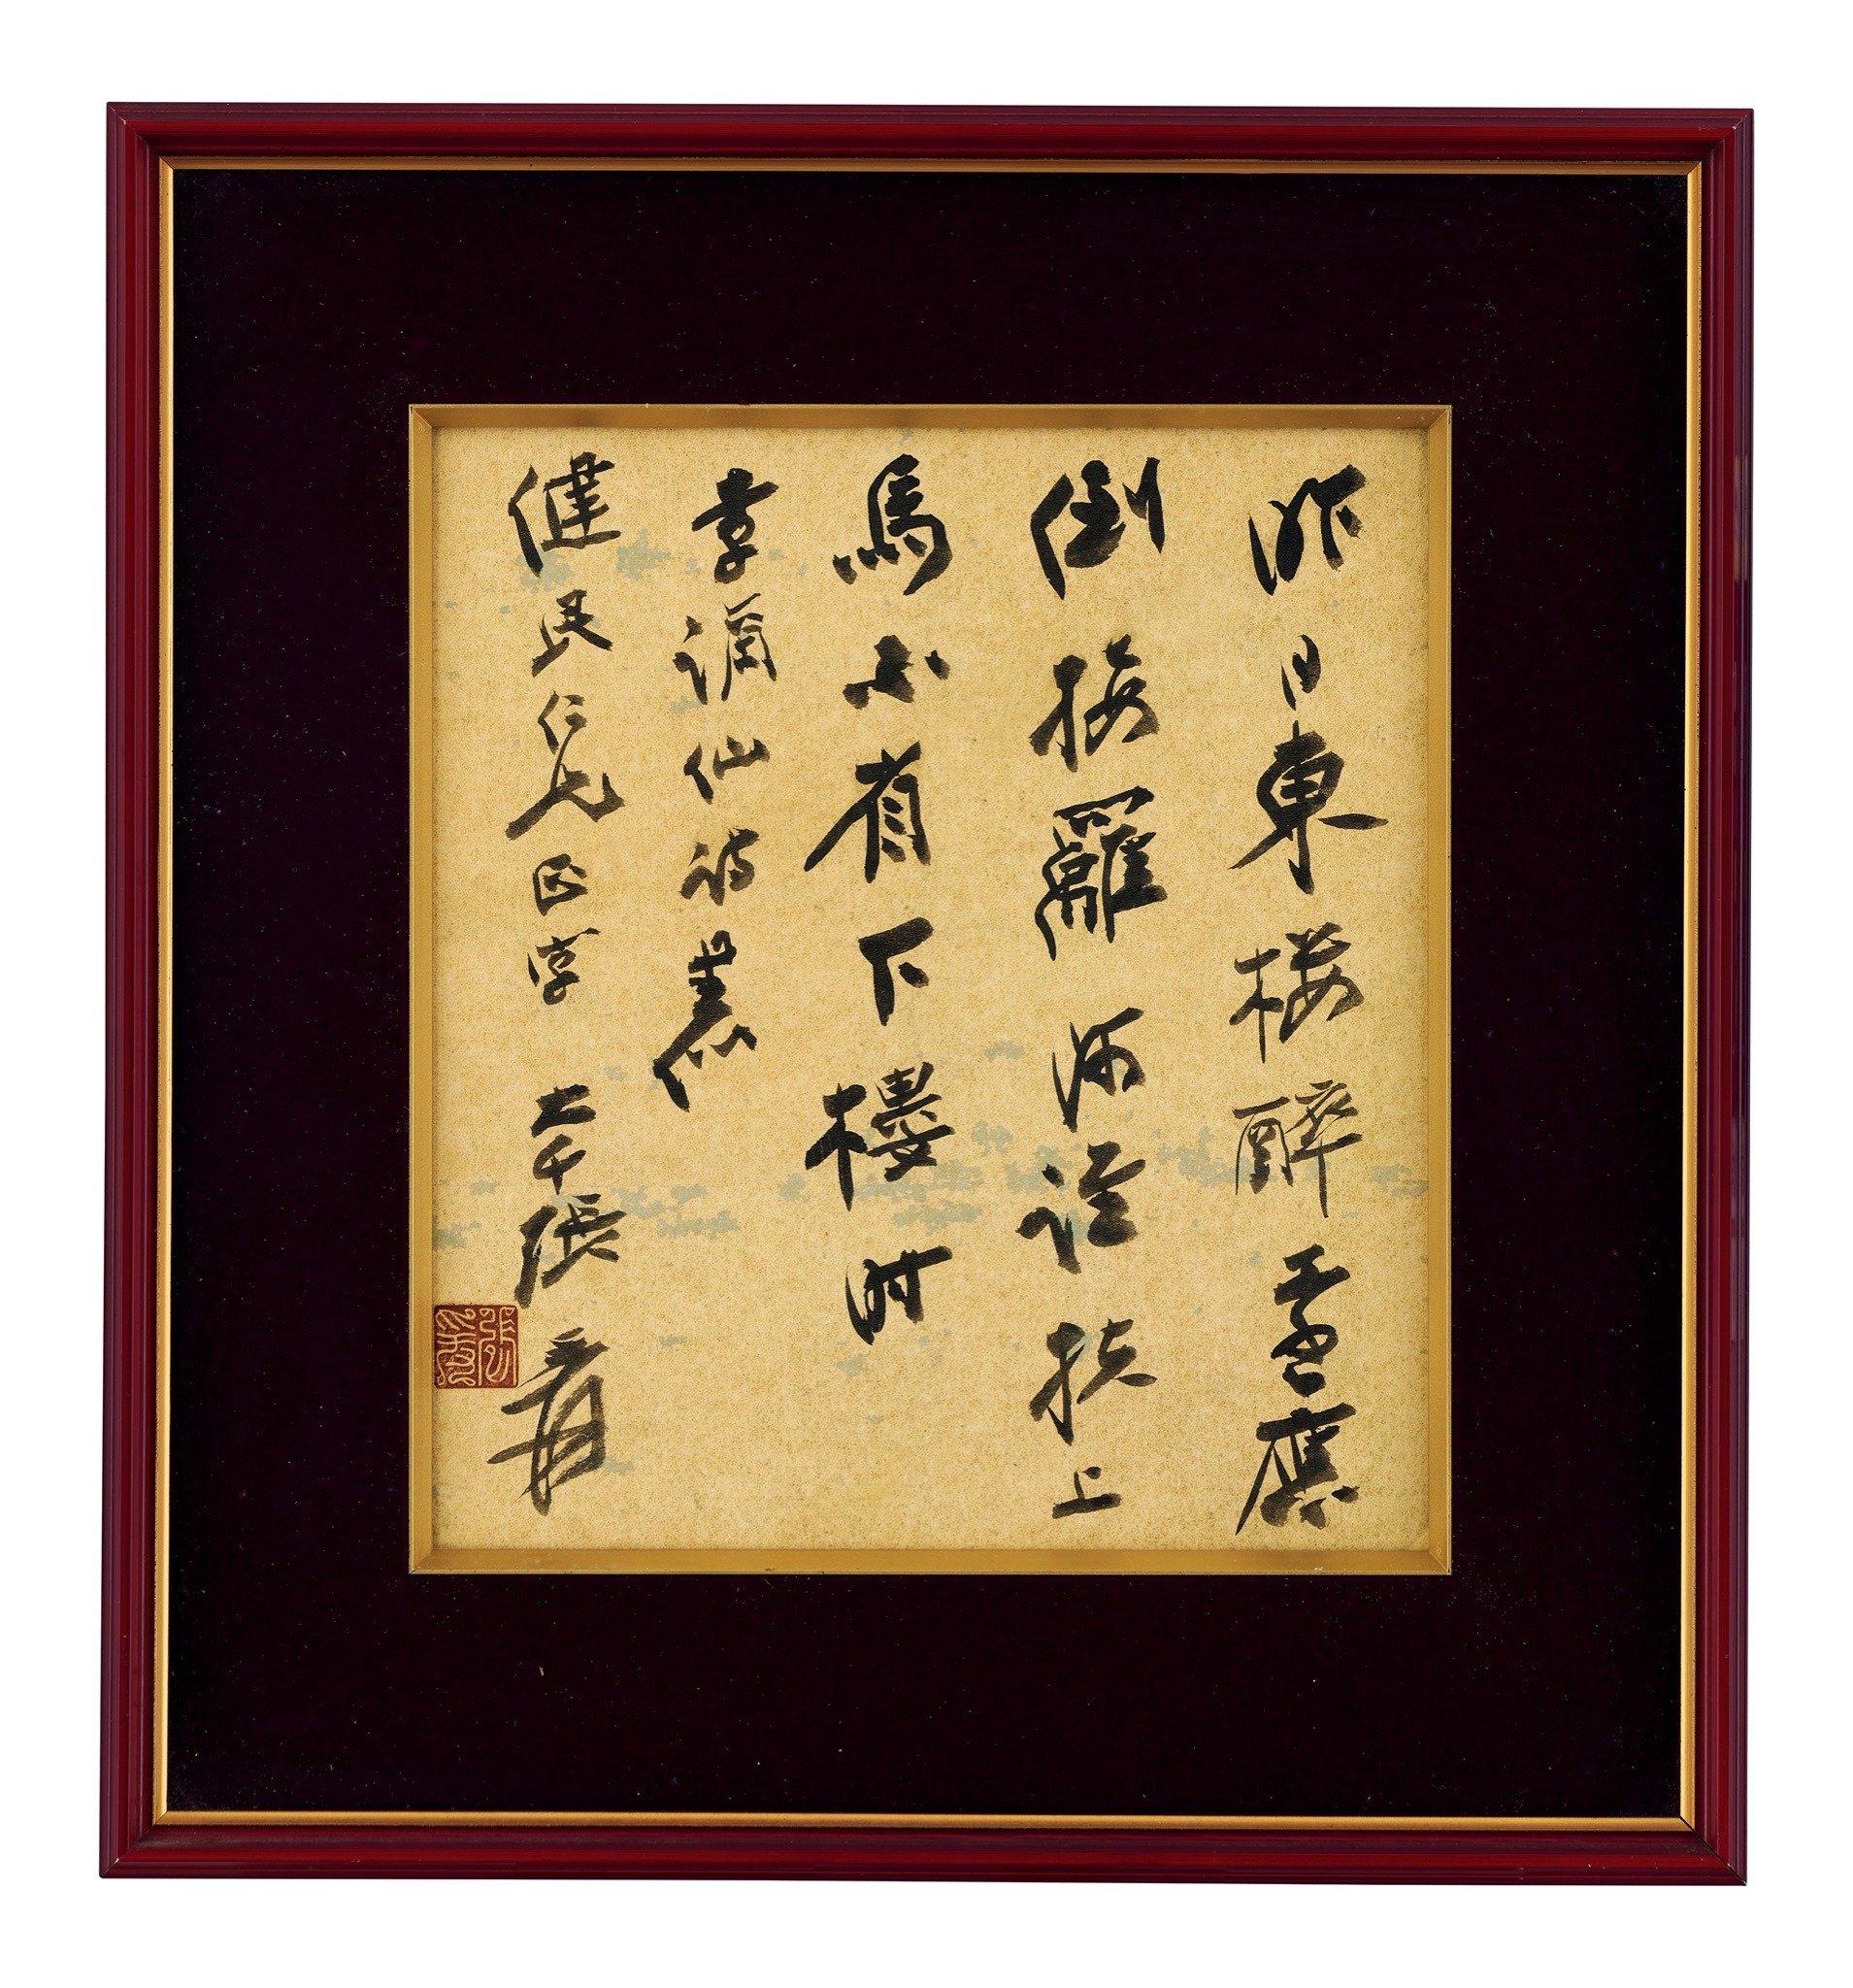 昨日東樓醉還應
倒接䍦阿誰扶上
馬不省下樓時
李謫仙詩書似
健民仁兄正字 大千張爰
張爰